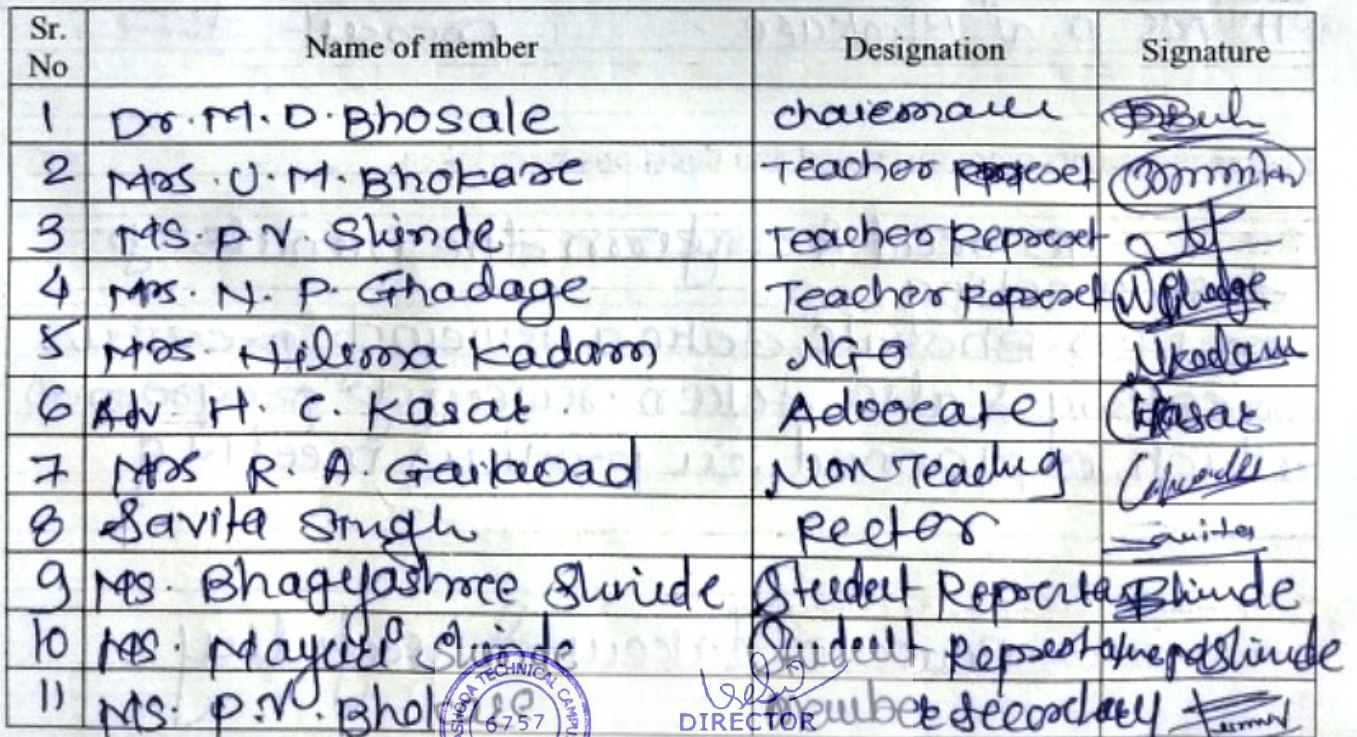 Sr. No Name of member Designation Signature
1 Dr. M. D. Bhosale chairman
2 Mrs. U. M. Bhokare Teacher Represet
3 Ms. P. V. Shinde Teacher Represet
4 Mrs. N. P. Ghadage Teacher Represet
5 Mrs. Nilima Kadam NGO Nkadam
6 Adv. H. C. Kasat Advocate HKasat
7 Mrs R. A Gaikwad Non Teachig
8 Savita Singh Rector Savita
9 Ms. Bhagyashree Shinde Student Bshinde
10 Ms. Mayuri Shinde Student Shinde
11 Ms. P. V. Member secordary
TECHNICAL
6757
DIRECTOR